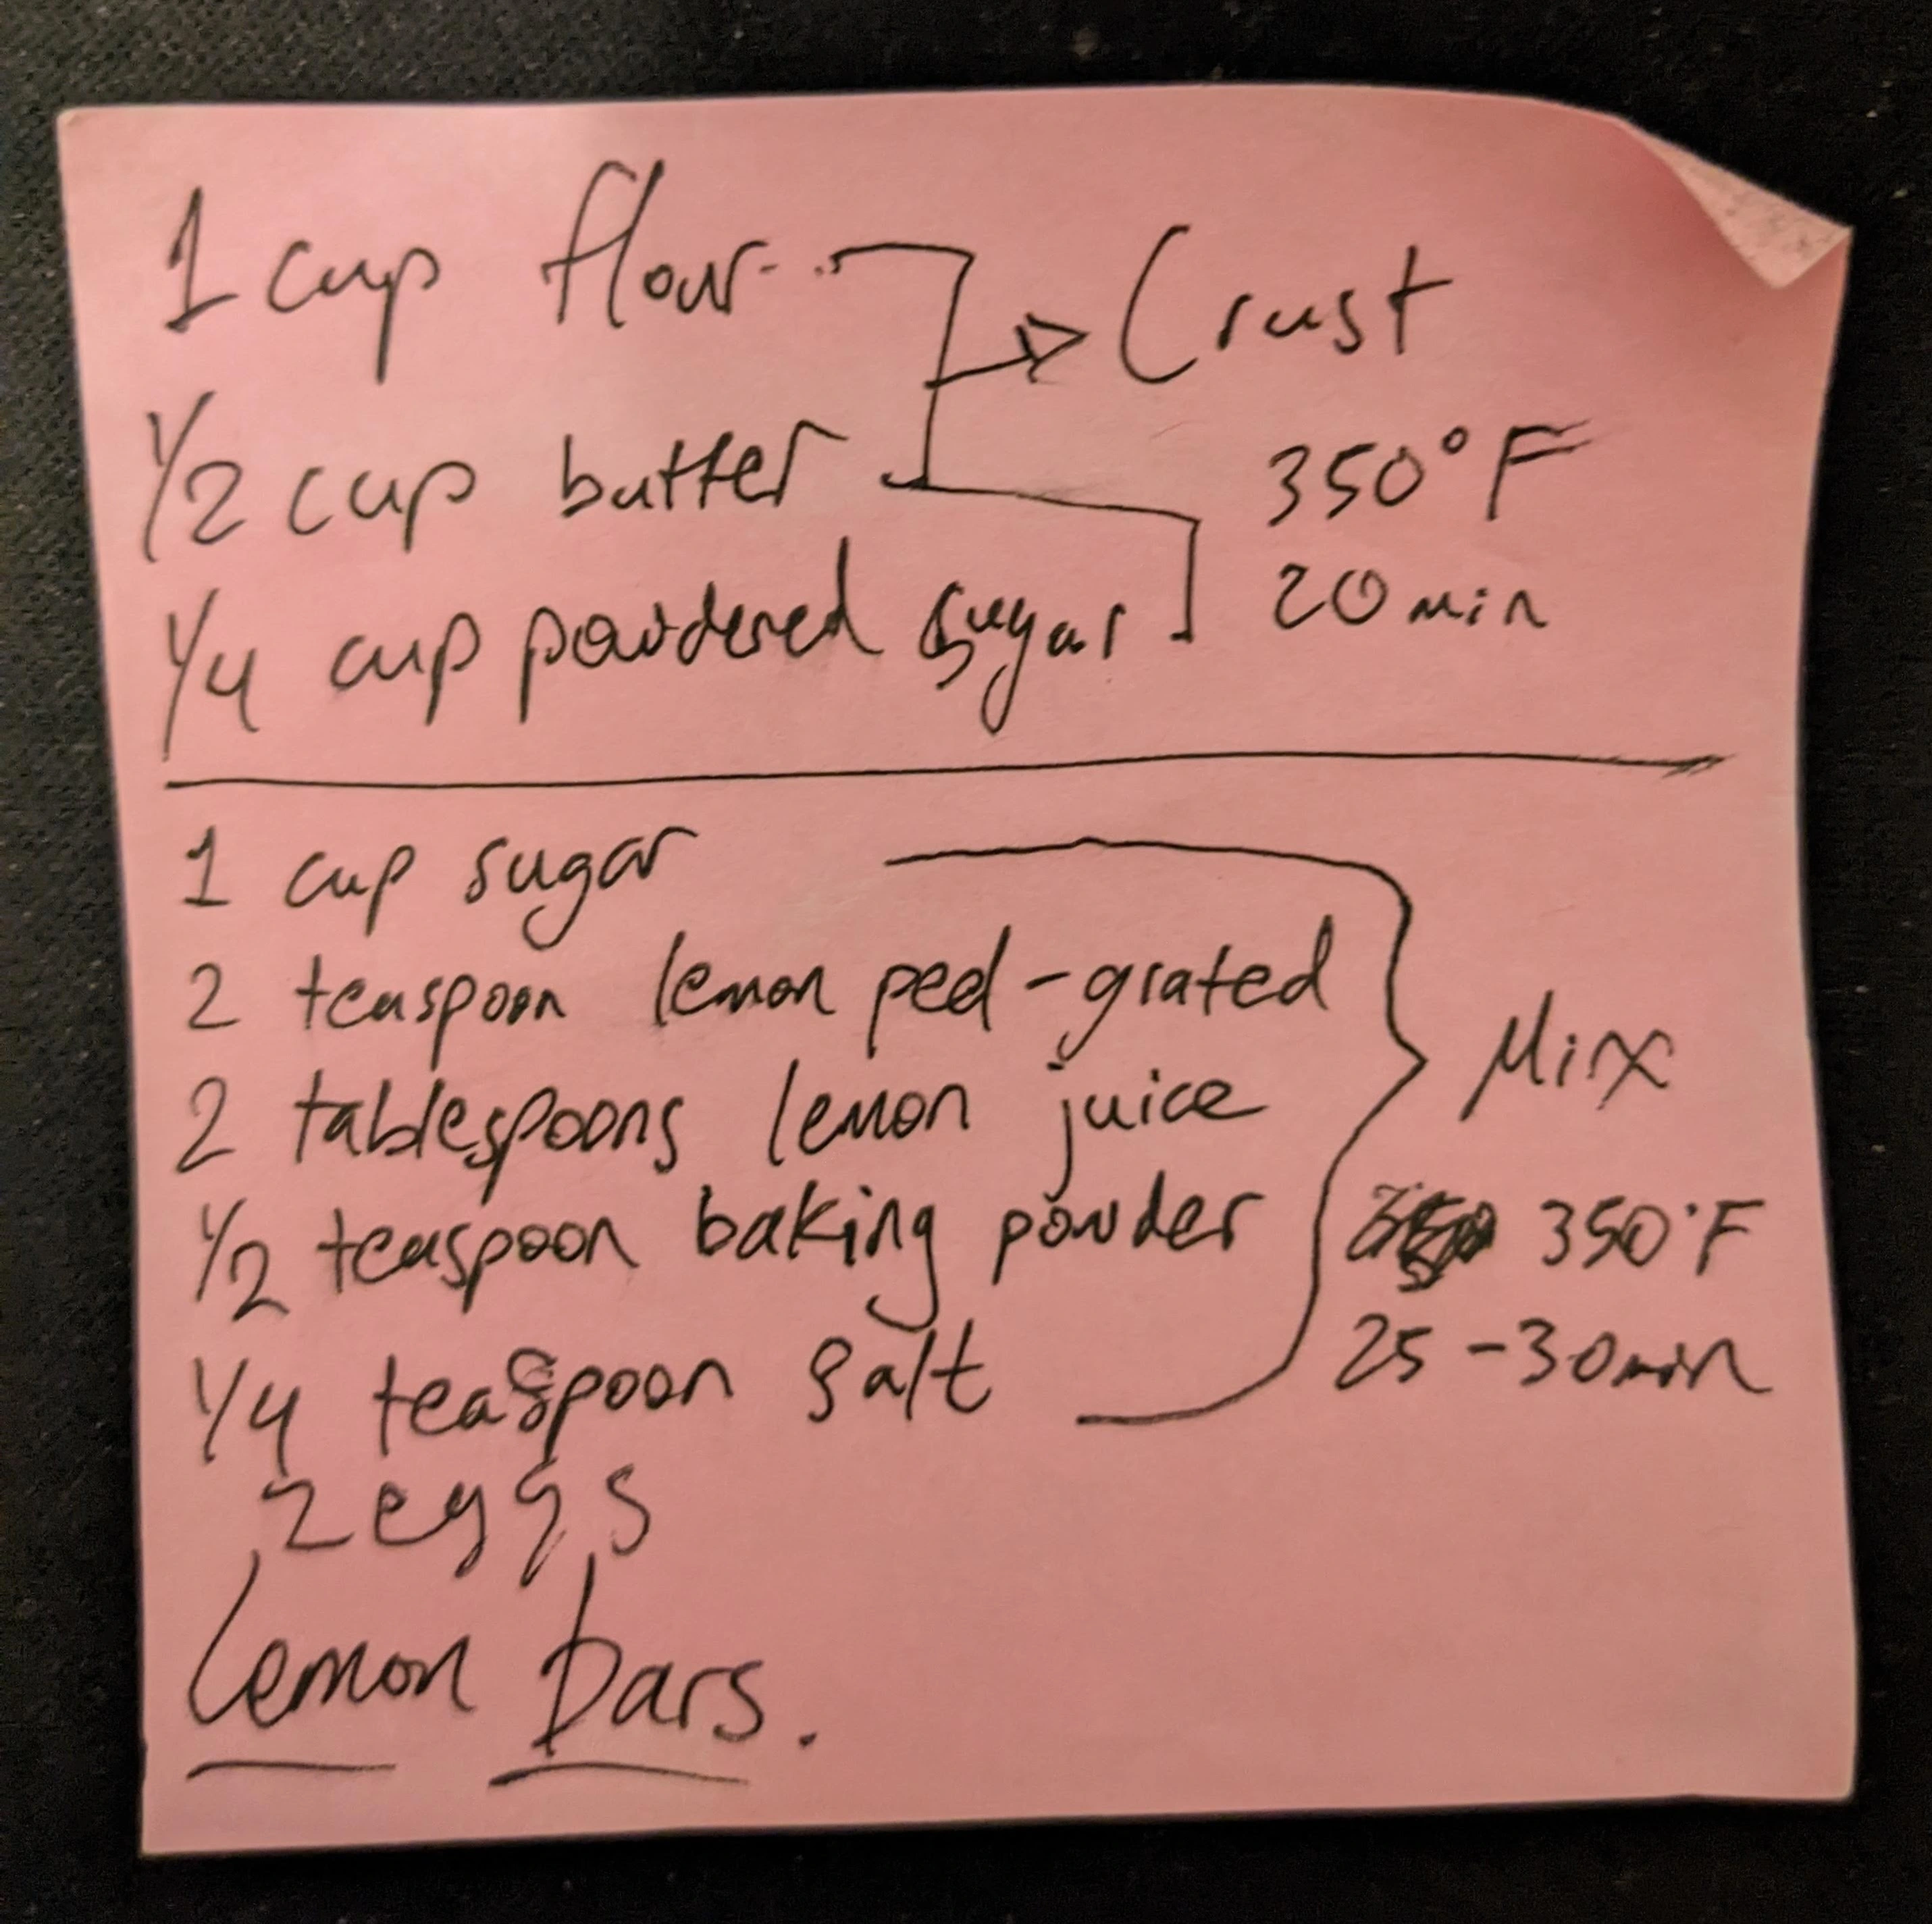 1 cup flour
Crust
1/2 cup butter
350°F
20 min
1/4 cup powdered sugar
1 cup sugar
2 teaspoon lemon peel - grated
2 tablespoons lemon juice
Mix
1/2 teaspoon baking powder
350°F
1/4 teaspoon salt
25 - 30 min
2 eggs
Lemon bars.